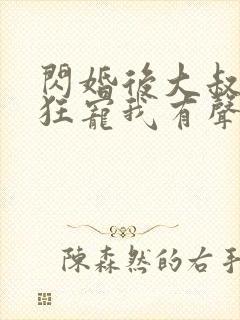 閃婚後大叔
狂寵我有聲
陳森然的右手